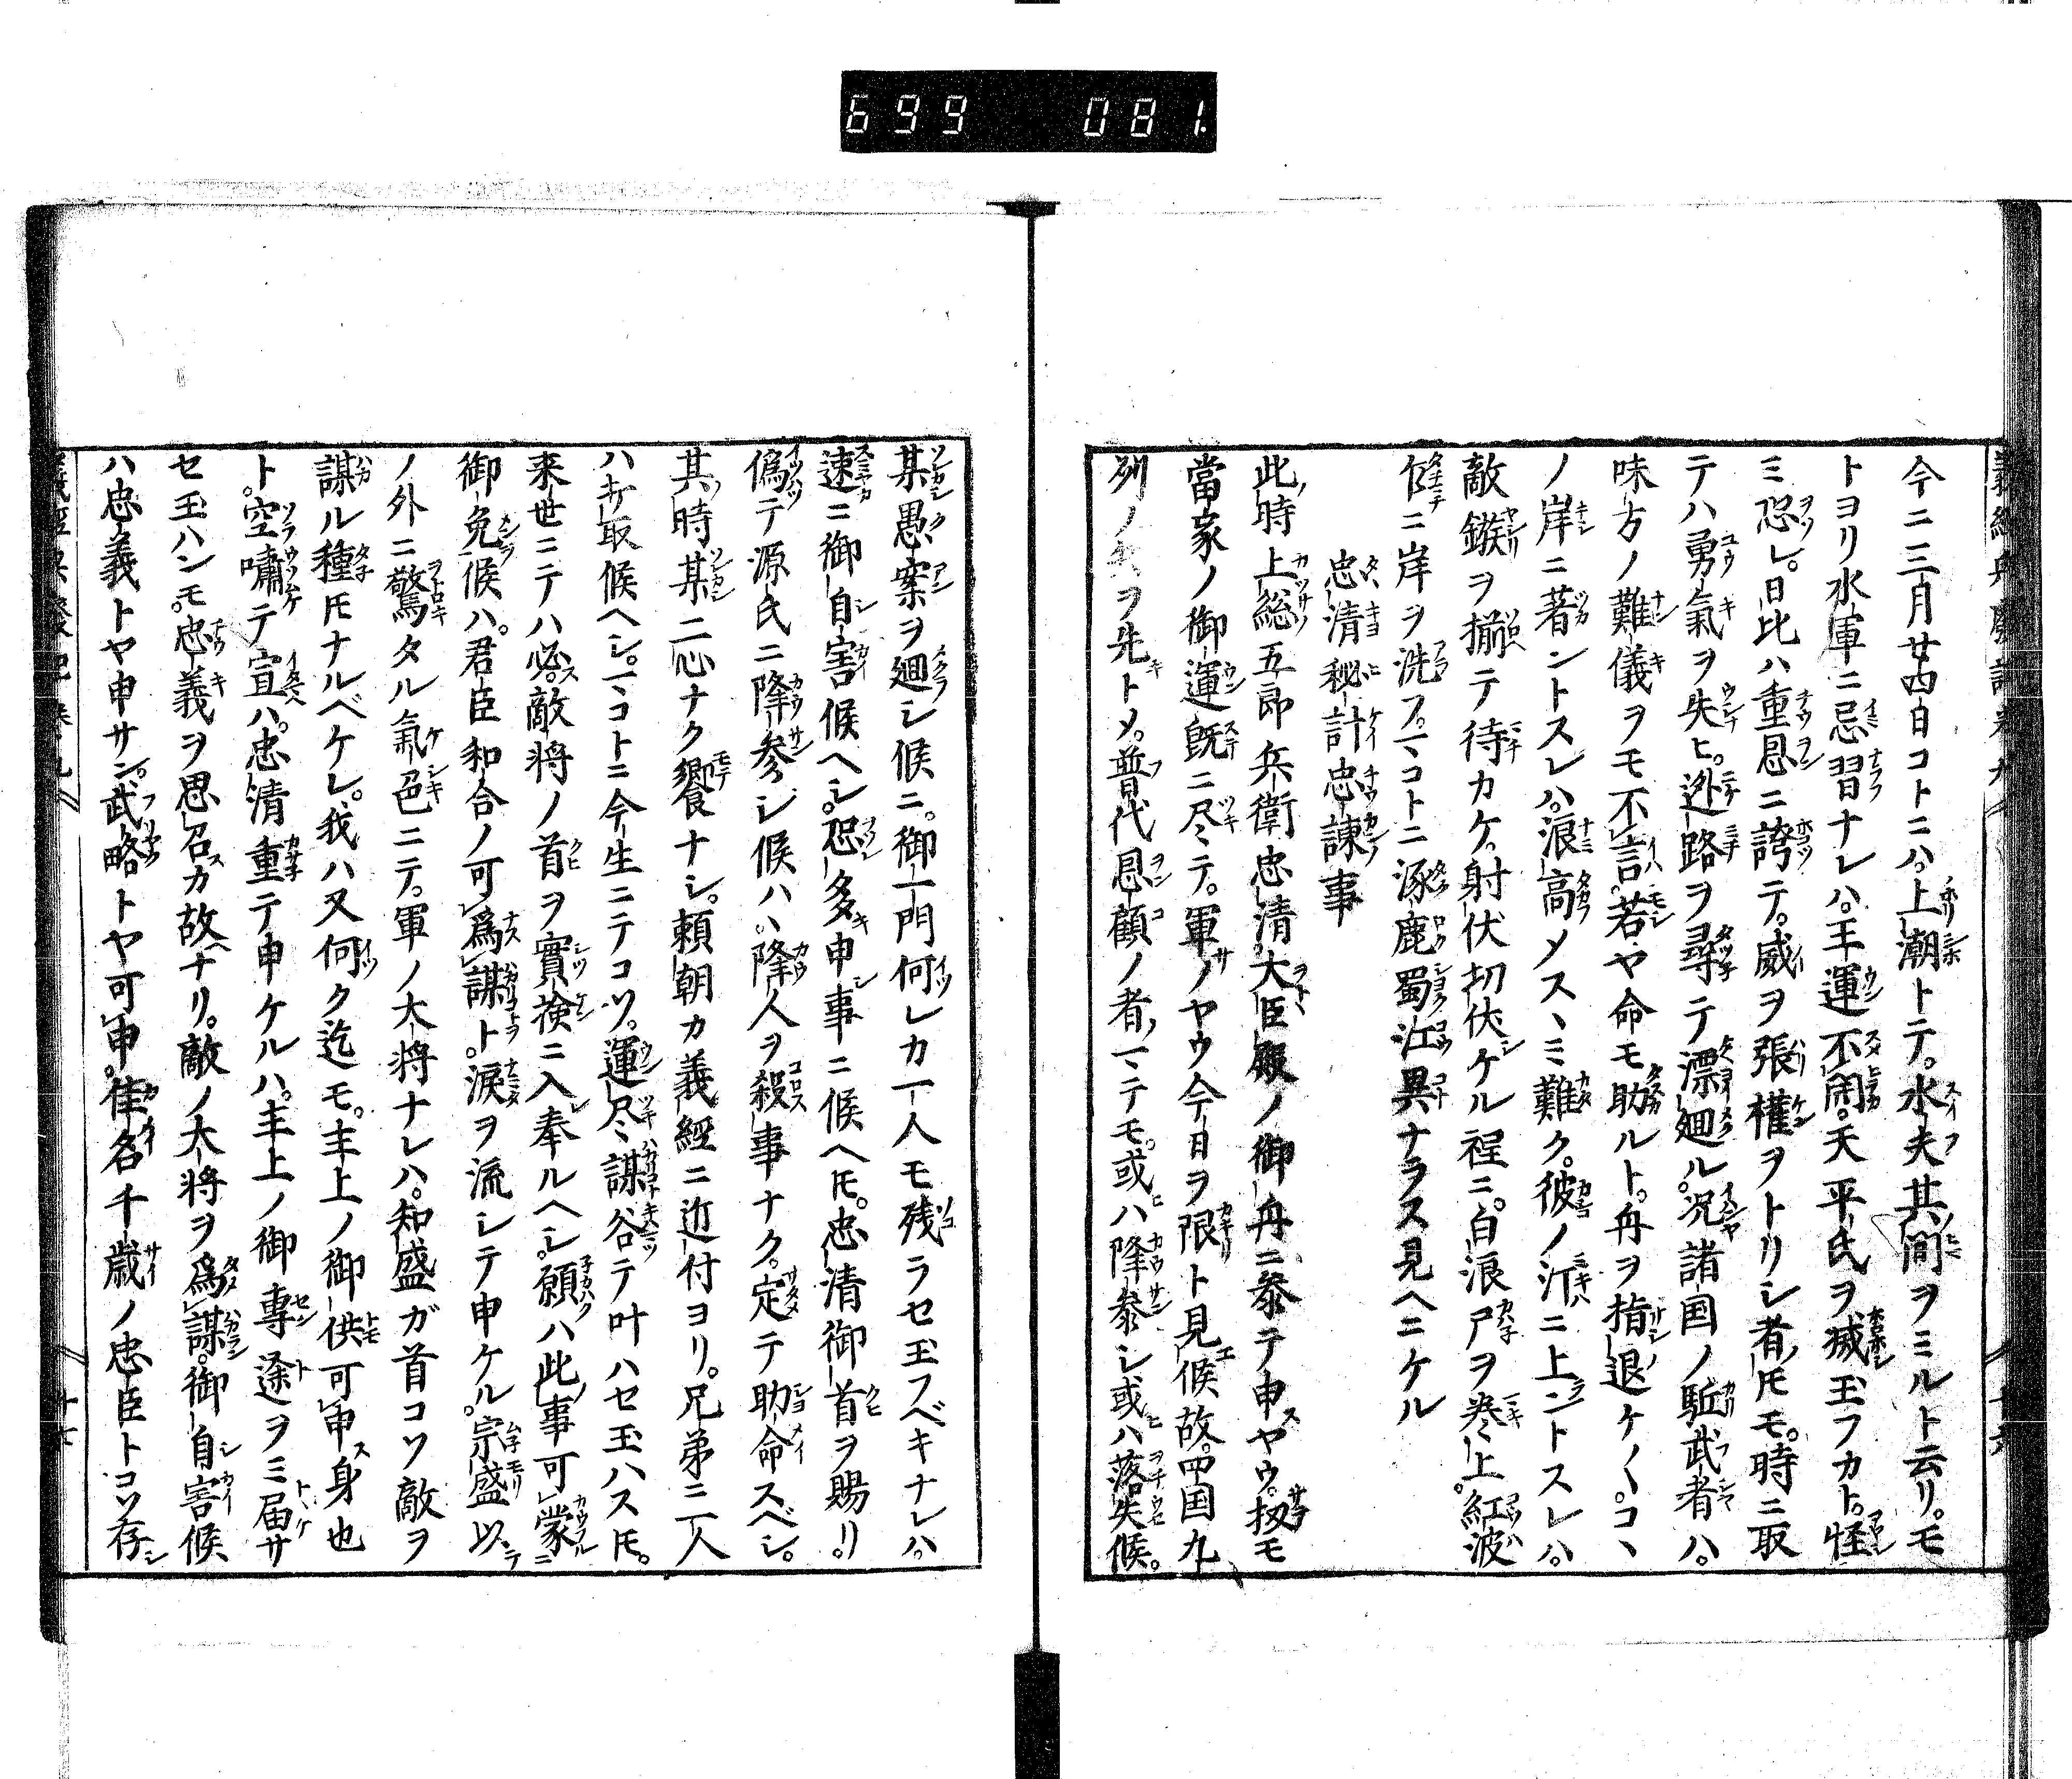 699 081.
今ニ三月廿四日コトニハ。上潮トテ。水夫其間ヲミルト云リ。モ
トヨリ水軍ニ忌習ナレハ。王運不閑。天平氏ヲ滅玉フカト。怪
ミ恐レ。日比ハ重恩ニ誇テ。威ヲ張權ヲトリシ者ノ𪜈モ。時ニ取
テハ勇氣ヲ失ヒ。迯路ヲ尋テ漂廻ル。況諸国ノ駈武者ハ。
味方ノ難儀ヲモ不言。若ヤ命モ助ルト。舟ヲ指退ケ〱。コヽ
ノ岸ニ著ントスレハ。浪高メスヽミ難ク。彼ノ汀ニ上ントスレハ。
敵鏃ヲ揃テ待カケ。射伏切伏ケル程ニ。白浪尸ヲ巻上。紅波
ニ岸ヲ洗フ。マコトニ涿鹿蜀江異ナラス見ヘニケル
忠清秘計忠諫事
此ノ時上総五郎兵衛忠清。大臣殿ノ御舟ニ参テ申スヤウ。扨モ
當家ノ御運既ニ尽テ。軍ノヤウ今日ヲ限ト見ヘ候故。四国九
列ノ ヲ先トメ。普代恩顧ノ者ノマテモ。或ハ降参シ或ハ落失候。
某愚案ヲ廻シ候ニ。御一門何レカ一人モ残ラセ玉フベキナレハ。
速ニ御自害候ヘシ。恐多申事ニ候ヘ𪜈。忠清御首ヲ賜リ。
偽テ源氏ニ降参シ候ハヽ。降人ヲ殺事ナク。定テ助命スベシ。
其ノ時某二心ナク饗ナシ。頼朝カ義經ニ近付ヨリ。兄弟ニ一人
ハ討取候ヘシ。マコトニ今生ニテコソ。運尽謀谷テ叶ハセ玉ハス𪜈。
来世ニテハ必ス敵将ノ首ヲ實検ニ入奉ルヘシ。願ハ此ノ事可蒙ニ
御免候ハ。君臣和合ノ可為謀ト。涙ヲ流シテ申ケル。宗盛以テ
ノ外ニ驚タル氣色ニテ。軍ノ大将ナレハ。知盛ガ首コソ敵ヲ
謀ル種𪜈ナルベケレ。我ハ又何ク迄モ。主上ノ御供可申ス身也
ト。空嘯テ宣ハ。忠清重テ申ケルハ。主上ノ御專途ヲミ届サ
セ玉ハンモ。忠義ヲ思召スカ故ナリ。敵ノ大将ヲ為謀。御自害候
ハ忠義トヤ申サン。武略トヤ可申。佳名千歳ノ忠臣トコソ存シ